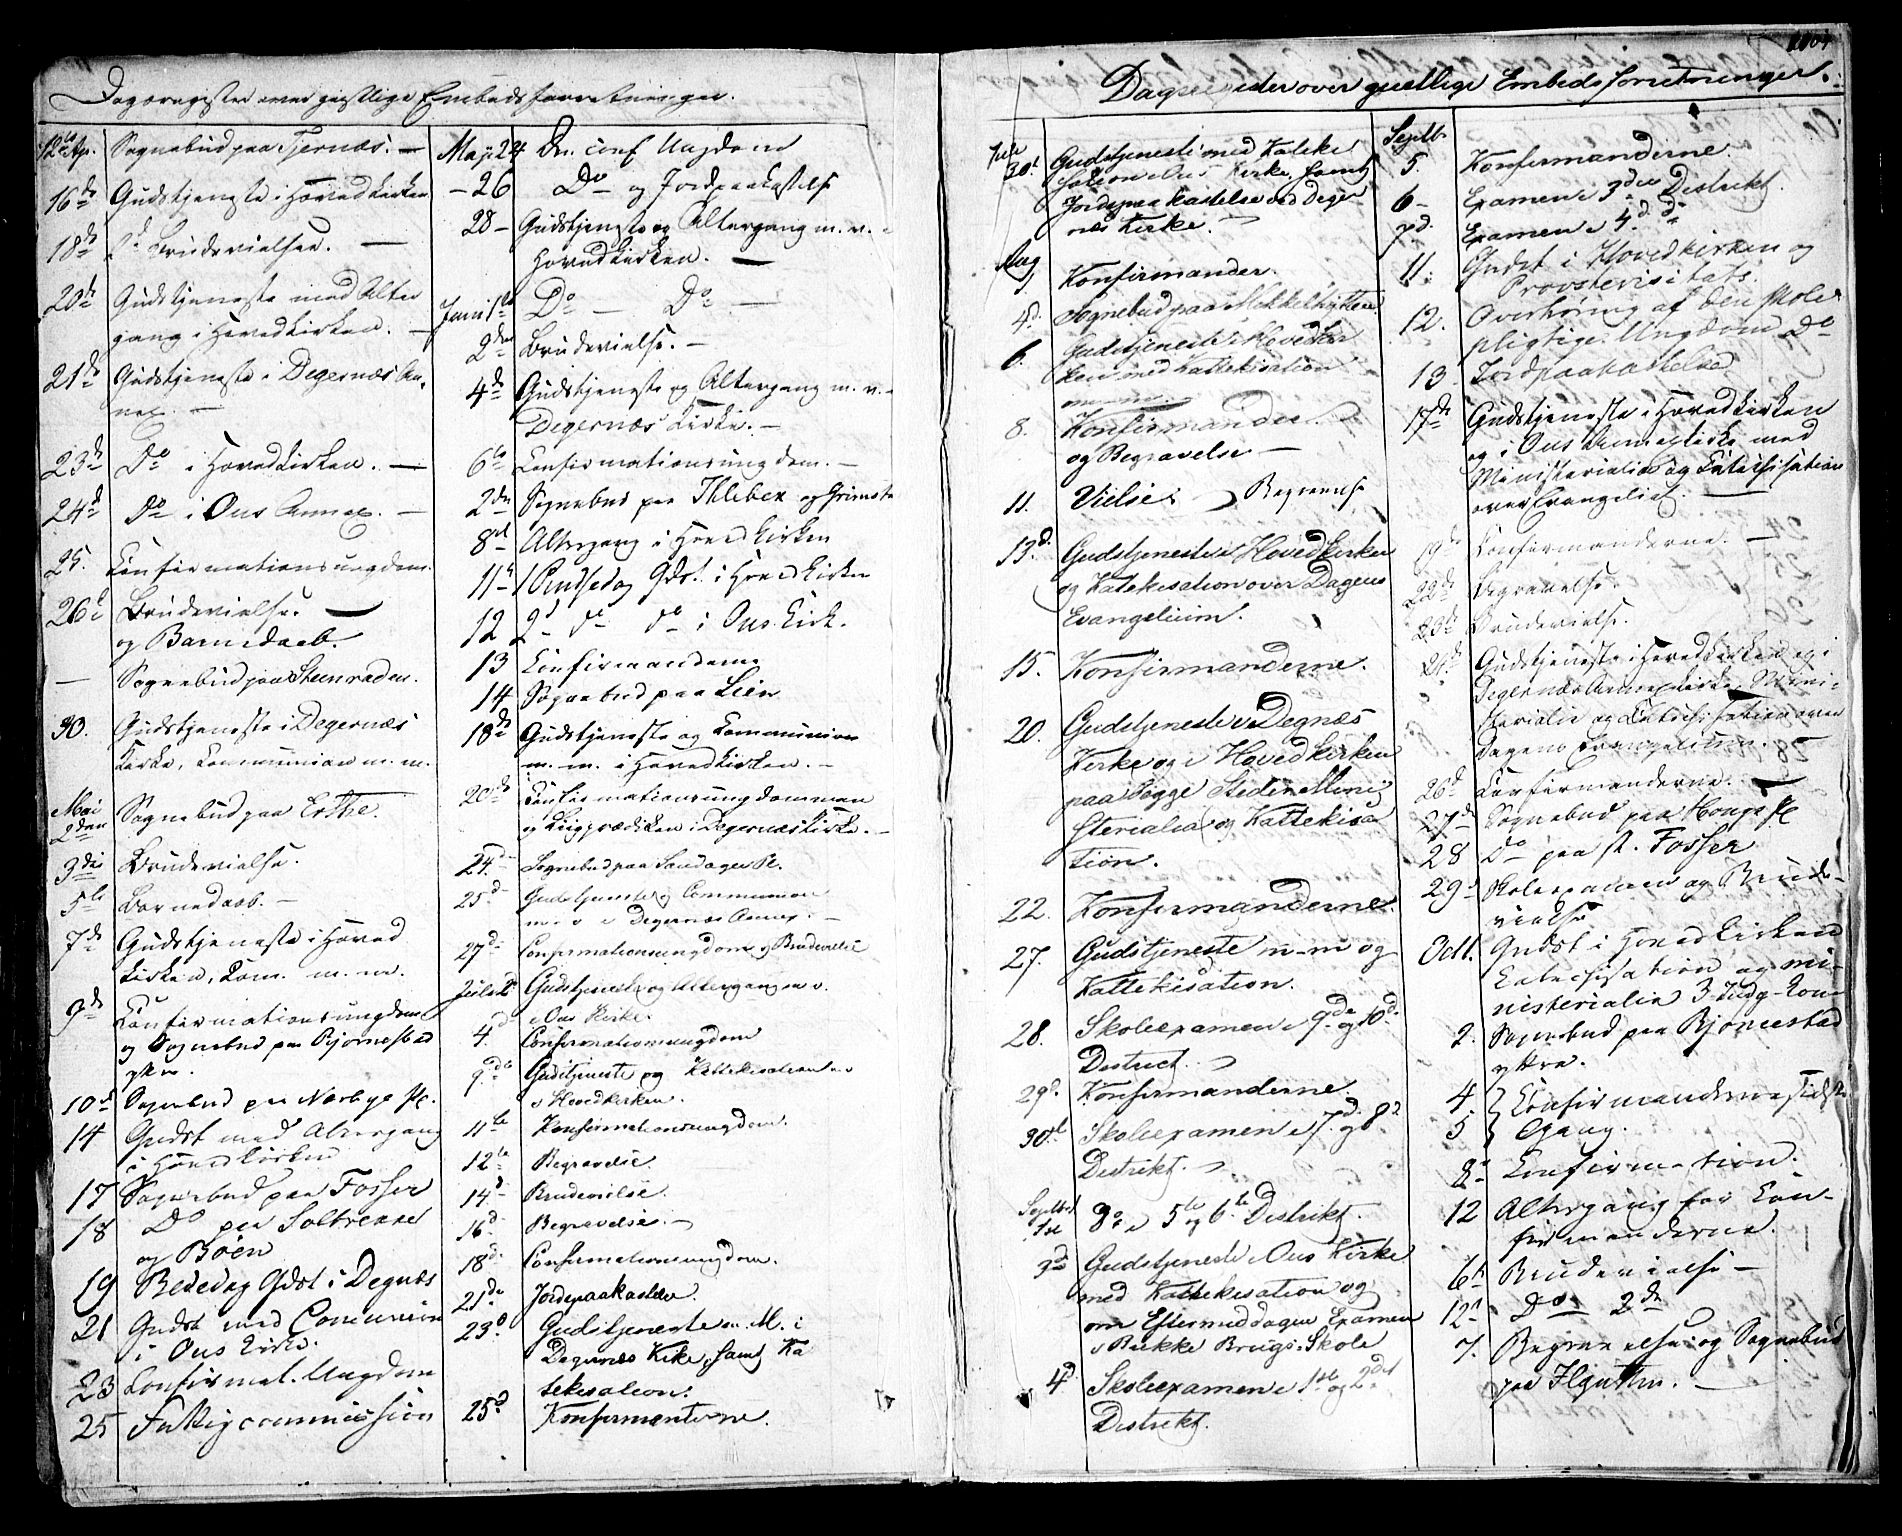 Dagsregister over geistlige Embedsforretninger.
12te Ap. Sognebud paa Tjernæs. —
16de Gudstjeneste i Hovedkirken
18de Brudevielser. —
20de Gudstjeneste med Alter
gang i Hovedkirken. —
21de Gudstjeneste i Degernæs An,
nex. —
23de Do i Hovedkirken. —
24de Do i Ous Annex. —
25. Confirmationsungdom.
26de Brudevielse. —
og Barnedaab.
— Sognebud paa Steenraden.
30. Gudstjeneste i Degernæs
Kirke, Communion m. m.
Mai
2den Sognebud paa Erthe.
3die Brudevielse.
5te Barnedaab. —
7de Gudstjeneste i Hoved
kirken, Com. m. m.
9de Confirmationsungdom
og Sognebud paa Bjørnestad
ytre.
10de Sognebud paa Nærbye Pl.
14 Gudst med Altergang
i Hovedkirken
17 Sognebud paa Fosser
18 Do paa Solbrekke
og Bøen
19 Bededag Gdst i Degnæs
21 Gudst med Communion
i Ous Kirke.
23 Confirmat. Ungdom
25 Fattigcommission
Maji 24 Do. conf Ungdom
— 26 Do og Jordpaakastelse
28 — Gudstjeneste og Altergang m. v. i
Hovedkirken. —
Juni 1te Do — Do —
2den Brudevielse. —
4de Gudstjeneste og Altergang m. v. i
Degernæs Kirke. —
6te Confirmationsungdom. —
2den Sognebud paa Kleber og Grimste
8de Altergang i Hovedkirken
11te 1 Pindsedag Gdst. i Hovedkirken
12 2d do do i Ous Kirk.
13 Confirmanderne
14 Sognebud paa Lien
18de Gudstjeneste og Communion
m. m. i Hovedkirken. —
20de Confirmationsungdommen
og Liigprædiken i Degernæs Kirke. —
24d Sognebud paa Sandager Pl.
25d Gudstjeneste og Communion
m. v. i Degernæs Annex. —
27d Confirmationsungdom og Brudevielse
Juli 2d Gudstjeneste og Altergang m v.
i Ous Kirke.
4d Confirmationsungdom
9de Gudstjeneste og Kattekisation
i Hovedkirken.
11te Konfirmationsungdom.
12te Begravelse.
14d Brudevielse.
16d Begravelse. —
18d Confirmationsungdom.
21de Jordspaakastelse.
23d Gudstjeneste m. M. i
Degernæs Kirke, samt Ka
tekisation.
25d Konfirmanterne.
Dagsregister over geistlige Embedsforretninger.
Juli
30te Gudstjeneste med Kateke
sation i Ous Kirke, samt
Jordspaakastelse ved Deger
næs Kirke.
Aug
1 Konfirmander.
4d. Sognebud paa Mekkelhytten
6. Gudstjeneste i Hovedkir
ken med Kattekisation
8. Konfirmander.
og Begravelse —
11. Vielse. Begravelse
13d. Gudstjeneste i Hovedkirken
og Katekisation over Dagens
Evangelium.
15. Konfirmanderne.
20. Gudstjeneste i Degnæs
Kirke og i Hovedkirken
paa begge Steder Mini
sterialia og Kattekisa
tion.
22. Konfirmanderne.
27. Gudstjeneste m-m og
Kattekisation.
28. Skoleexamen i 9de og 10d.
District.
29d. Konfirmanderne.
30te Skoleexamen i 7d. og 8d
Distrikt.
Septbr
1te Do i 5te og 6te Distrikt.
3die Gudstjeneste i Ous Kirke
med Kattekisation og
om Eftermiddagen Examen
i Bække Brugs Skole
4d Skoleexamen i 1ste og 2det
Distrikt.
Septbr
5. Konfirmanderne.
6 — Examen i 3die Distrikt.
7d. Examen i 4d. do
11. Gudst i Hovedkirken og
Provstevisitats.
12. Overhøring af den skole
pligtige Ungdom Do
13. Jordpaakastelse
17de Gudstjeneste i Hovedkirken
og i Ous Annexkirke med
Ministerialia og Catechisation
over Evangeliet. —
19de Confirmanderne. —
22de Begravelse.
23de Brudevielse.
24de Gudstjeneste i Hovedkirken og i
Degernæs Annexkirke, Mini-
sterialia og Catechisation over
Dagens Evangelium.
26d Confirmanderne. —
27de Sognebud paa Houge Pl
28 Do paa st. Fosser
29d Skoleexamen og Brude-
vielse
Oct 1. Gudst i Hovedkirken
Catechisation og mi-
nisterialia
2. Sognebud paa Bjørnestad
ytre.
4 } Confirmanderne sidste
5 } Gang.
8d Confirmation.
12 Altergang for Con-
firmanderne.
6te Brudevielse —
12te Do 2de
7. Begravelse og Sognebud
paa —